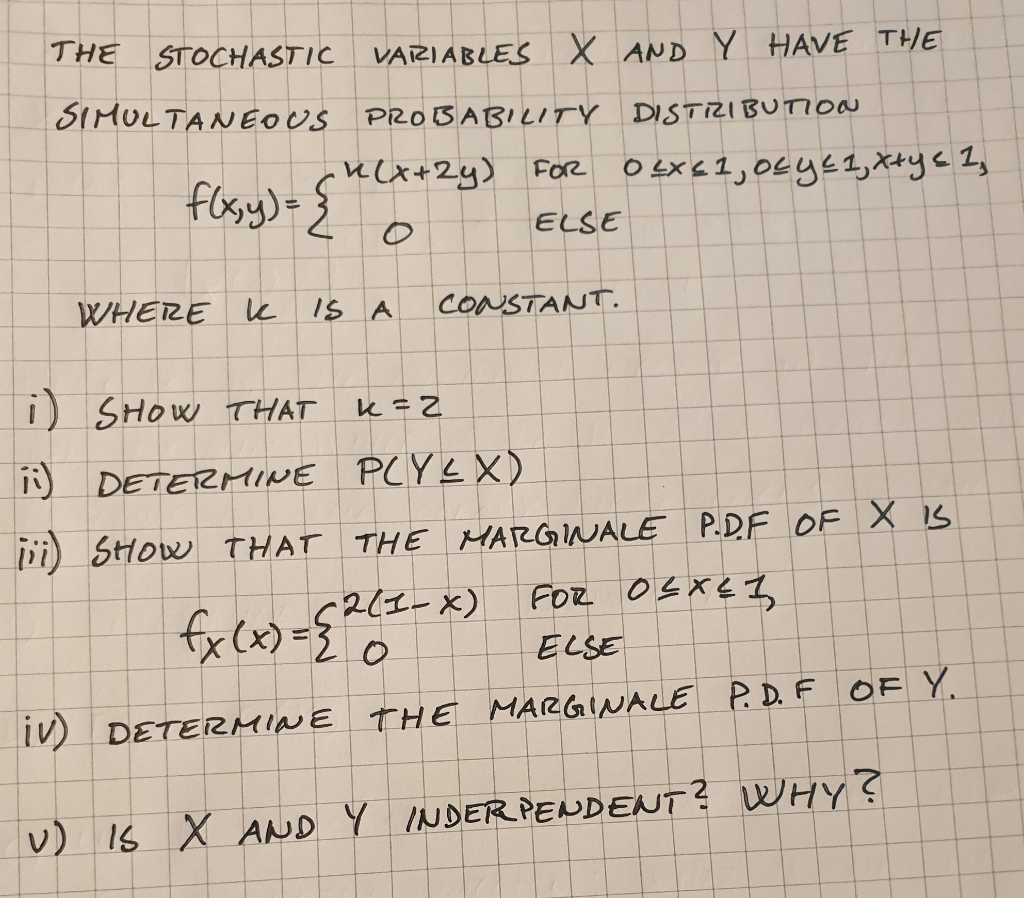 THE STOCHASTIC VARIABLES X AND Y HAVE THE
SIMULTANEOUS PROBABILITY DISTRIBUTION
f(x,y)={ k(x+2y) FOR 0≤x≤1, 0≤y≤1, x+y≤1,
0 ELSE
WHERE k IS A CONSTANT.
i) SHOW THAT k=2
ii) DETERMINE P(Y≤X)
iii) SHOW THAT THE MARGINALE P.D.F OF X IS
fx(x)={ 2(1-x) FOR 0≤x≤1,
0 ELSE
iv) DETERMINE THE MARGINALE P.D.F OF Y.
v) IS X AND Y INDERPENDENT? WHY?